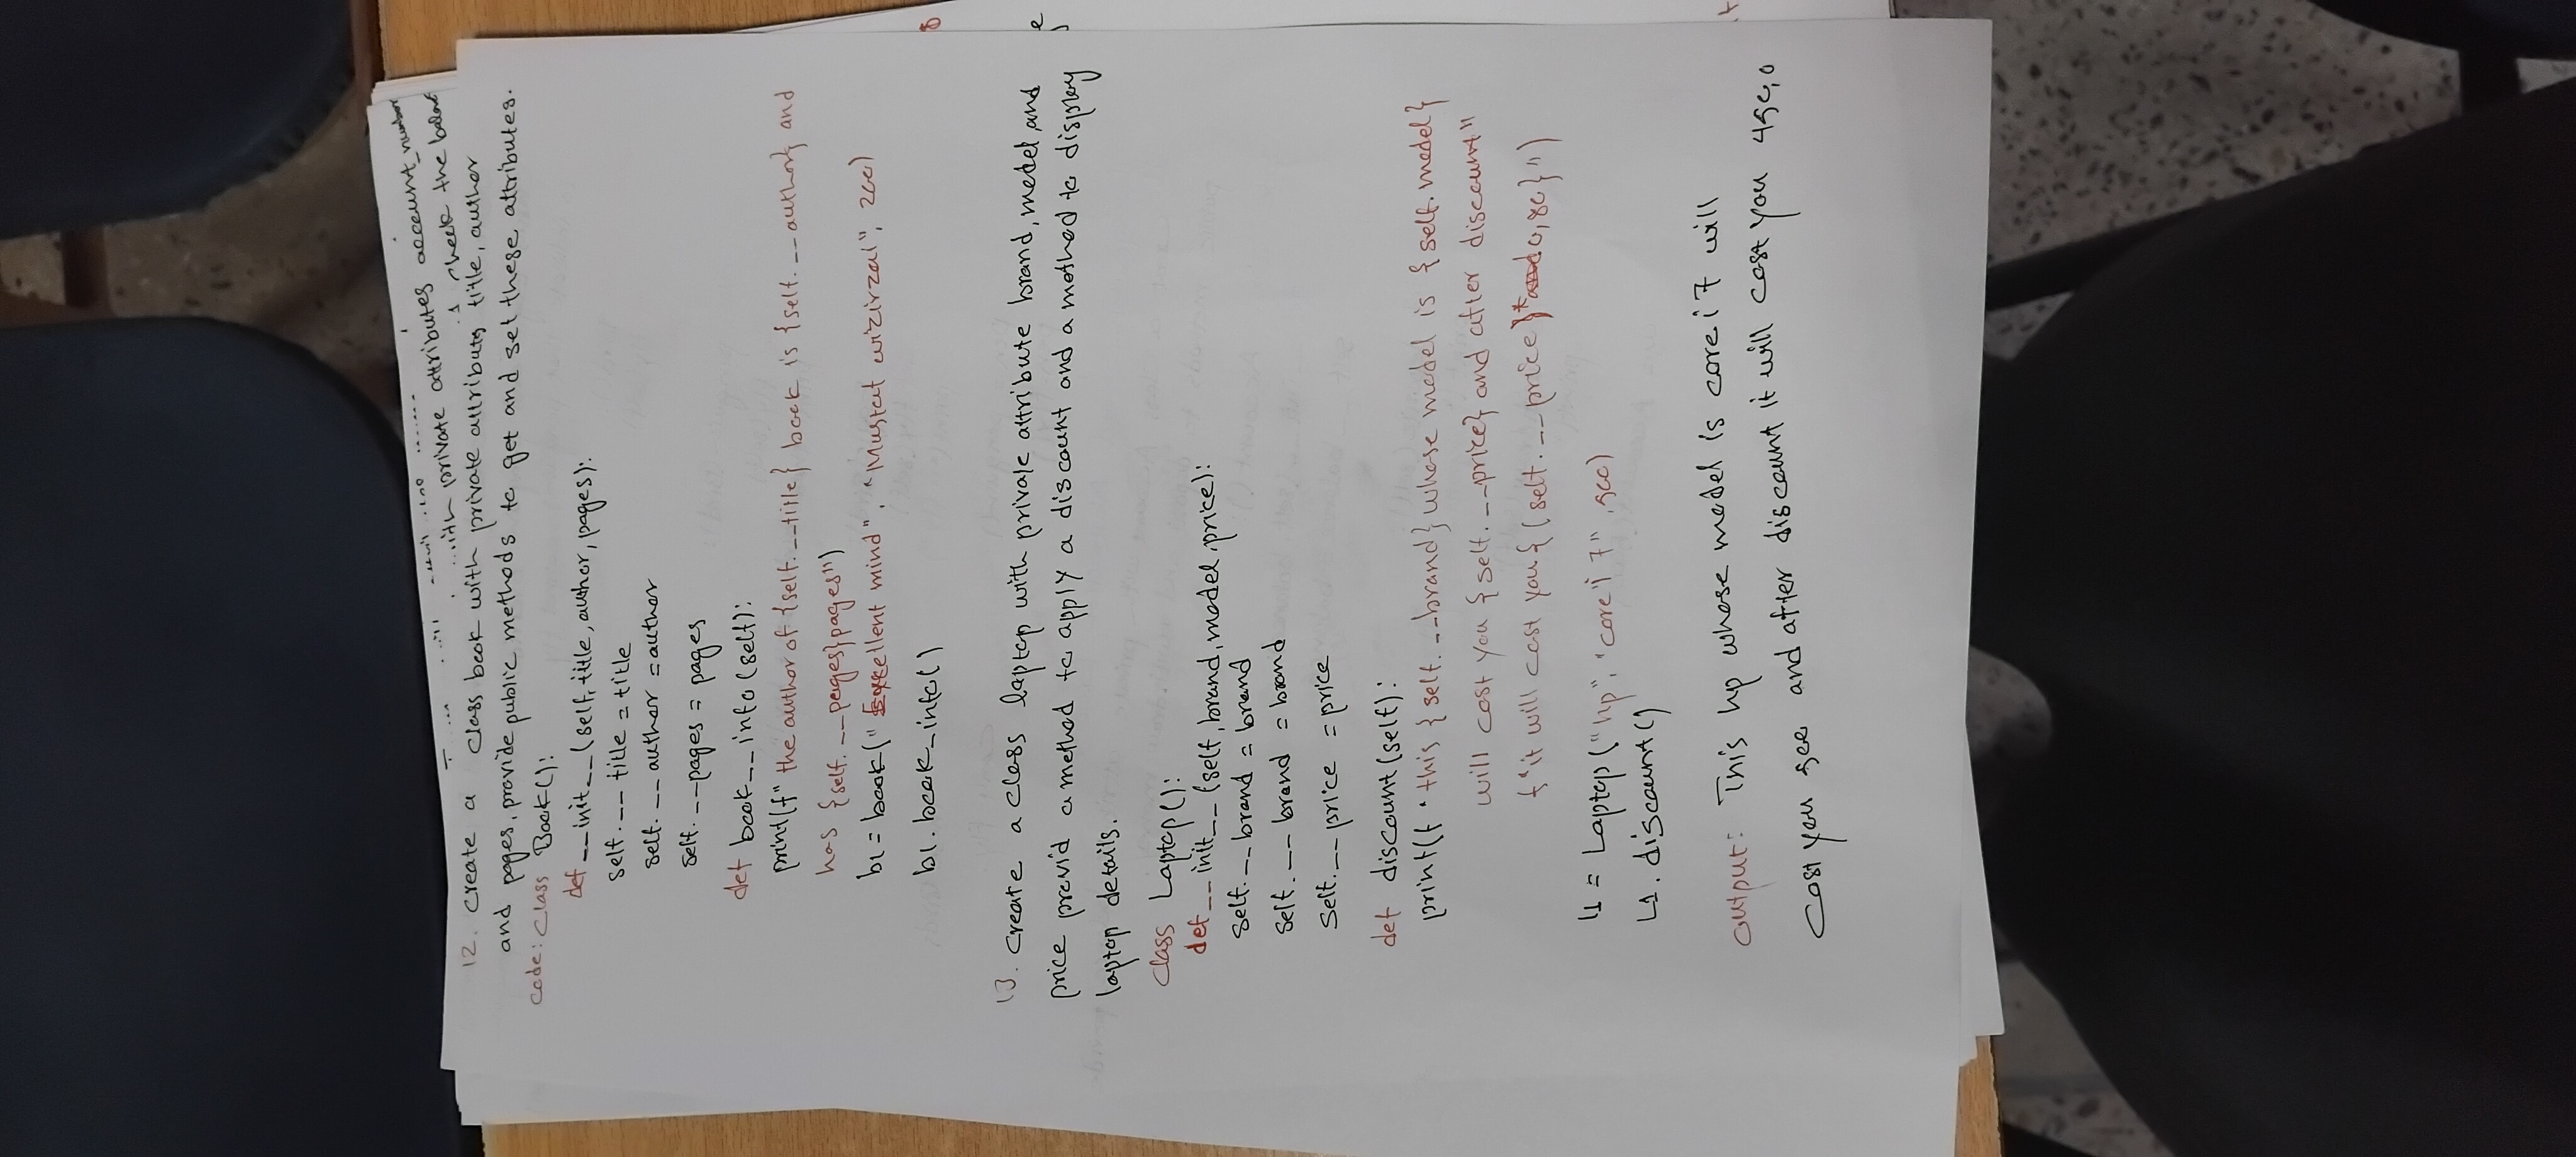 with private attributes account_number
check the balance
12. Create a class book with private attributs title, author
and pages, provide public methods to get and set these attributes.
code: class Book():
def __init__(self, title, author, pages):
self.__title = title
self.__author = author
self.__pages = pages
def book__info(self):
print(f" the author of {self.__title} book is {self.__author} and
has {self.__pages} pages")
b1 = book(" Excellent mind", "Mustat wizirzai", 200)
b1.book_info()
13. Create a class laptop with private attribute brand, model, and
price provid a method to apply a discount and a method to display
laptop details.
class Laptop():
def __init__(self, brand, model, price):
self.__brand = brand
self.__brand = brand
self.__price = price
def discount(self):
print(f "this {self.__brand} whose model is {self.model}
will cost you {self.__price} and after discount"
f"it will cost you {(self.__price)*0,80}")
l1 = Laptop("hp", "core i 7", 500)
L1.discount()
output: This hp whose model is core i 7 will
cost you 500 and after discount it will cost you 450,0